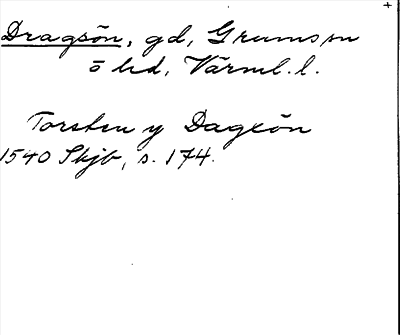 Dragsön, gd, Grums sn
o hd, Värml. l.
Torsten y Dagxön
1540 Skjb, s. 174.